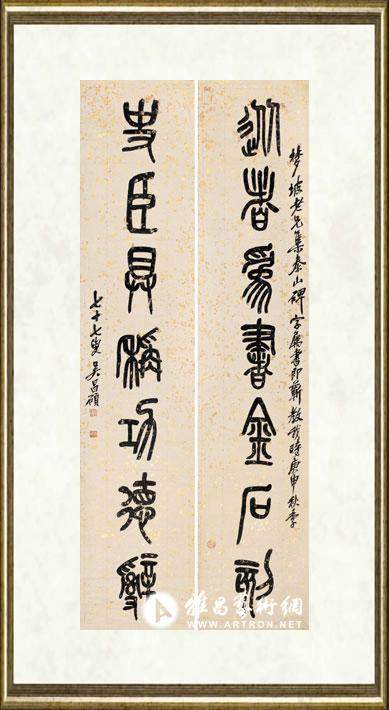 夢坡老兄集泰山碑字屬書即蘄教我時庚申秋季
者為書金石刻
史臣具稱功德辤
七十七叟吳昌碩
雅昌藝術網
WWW.ARTRON.NET